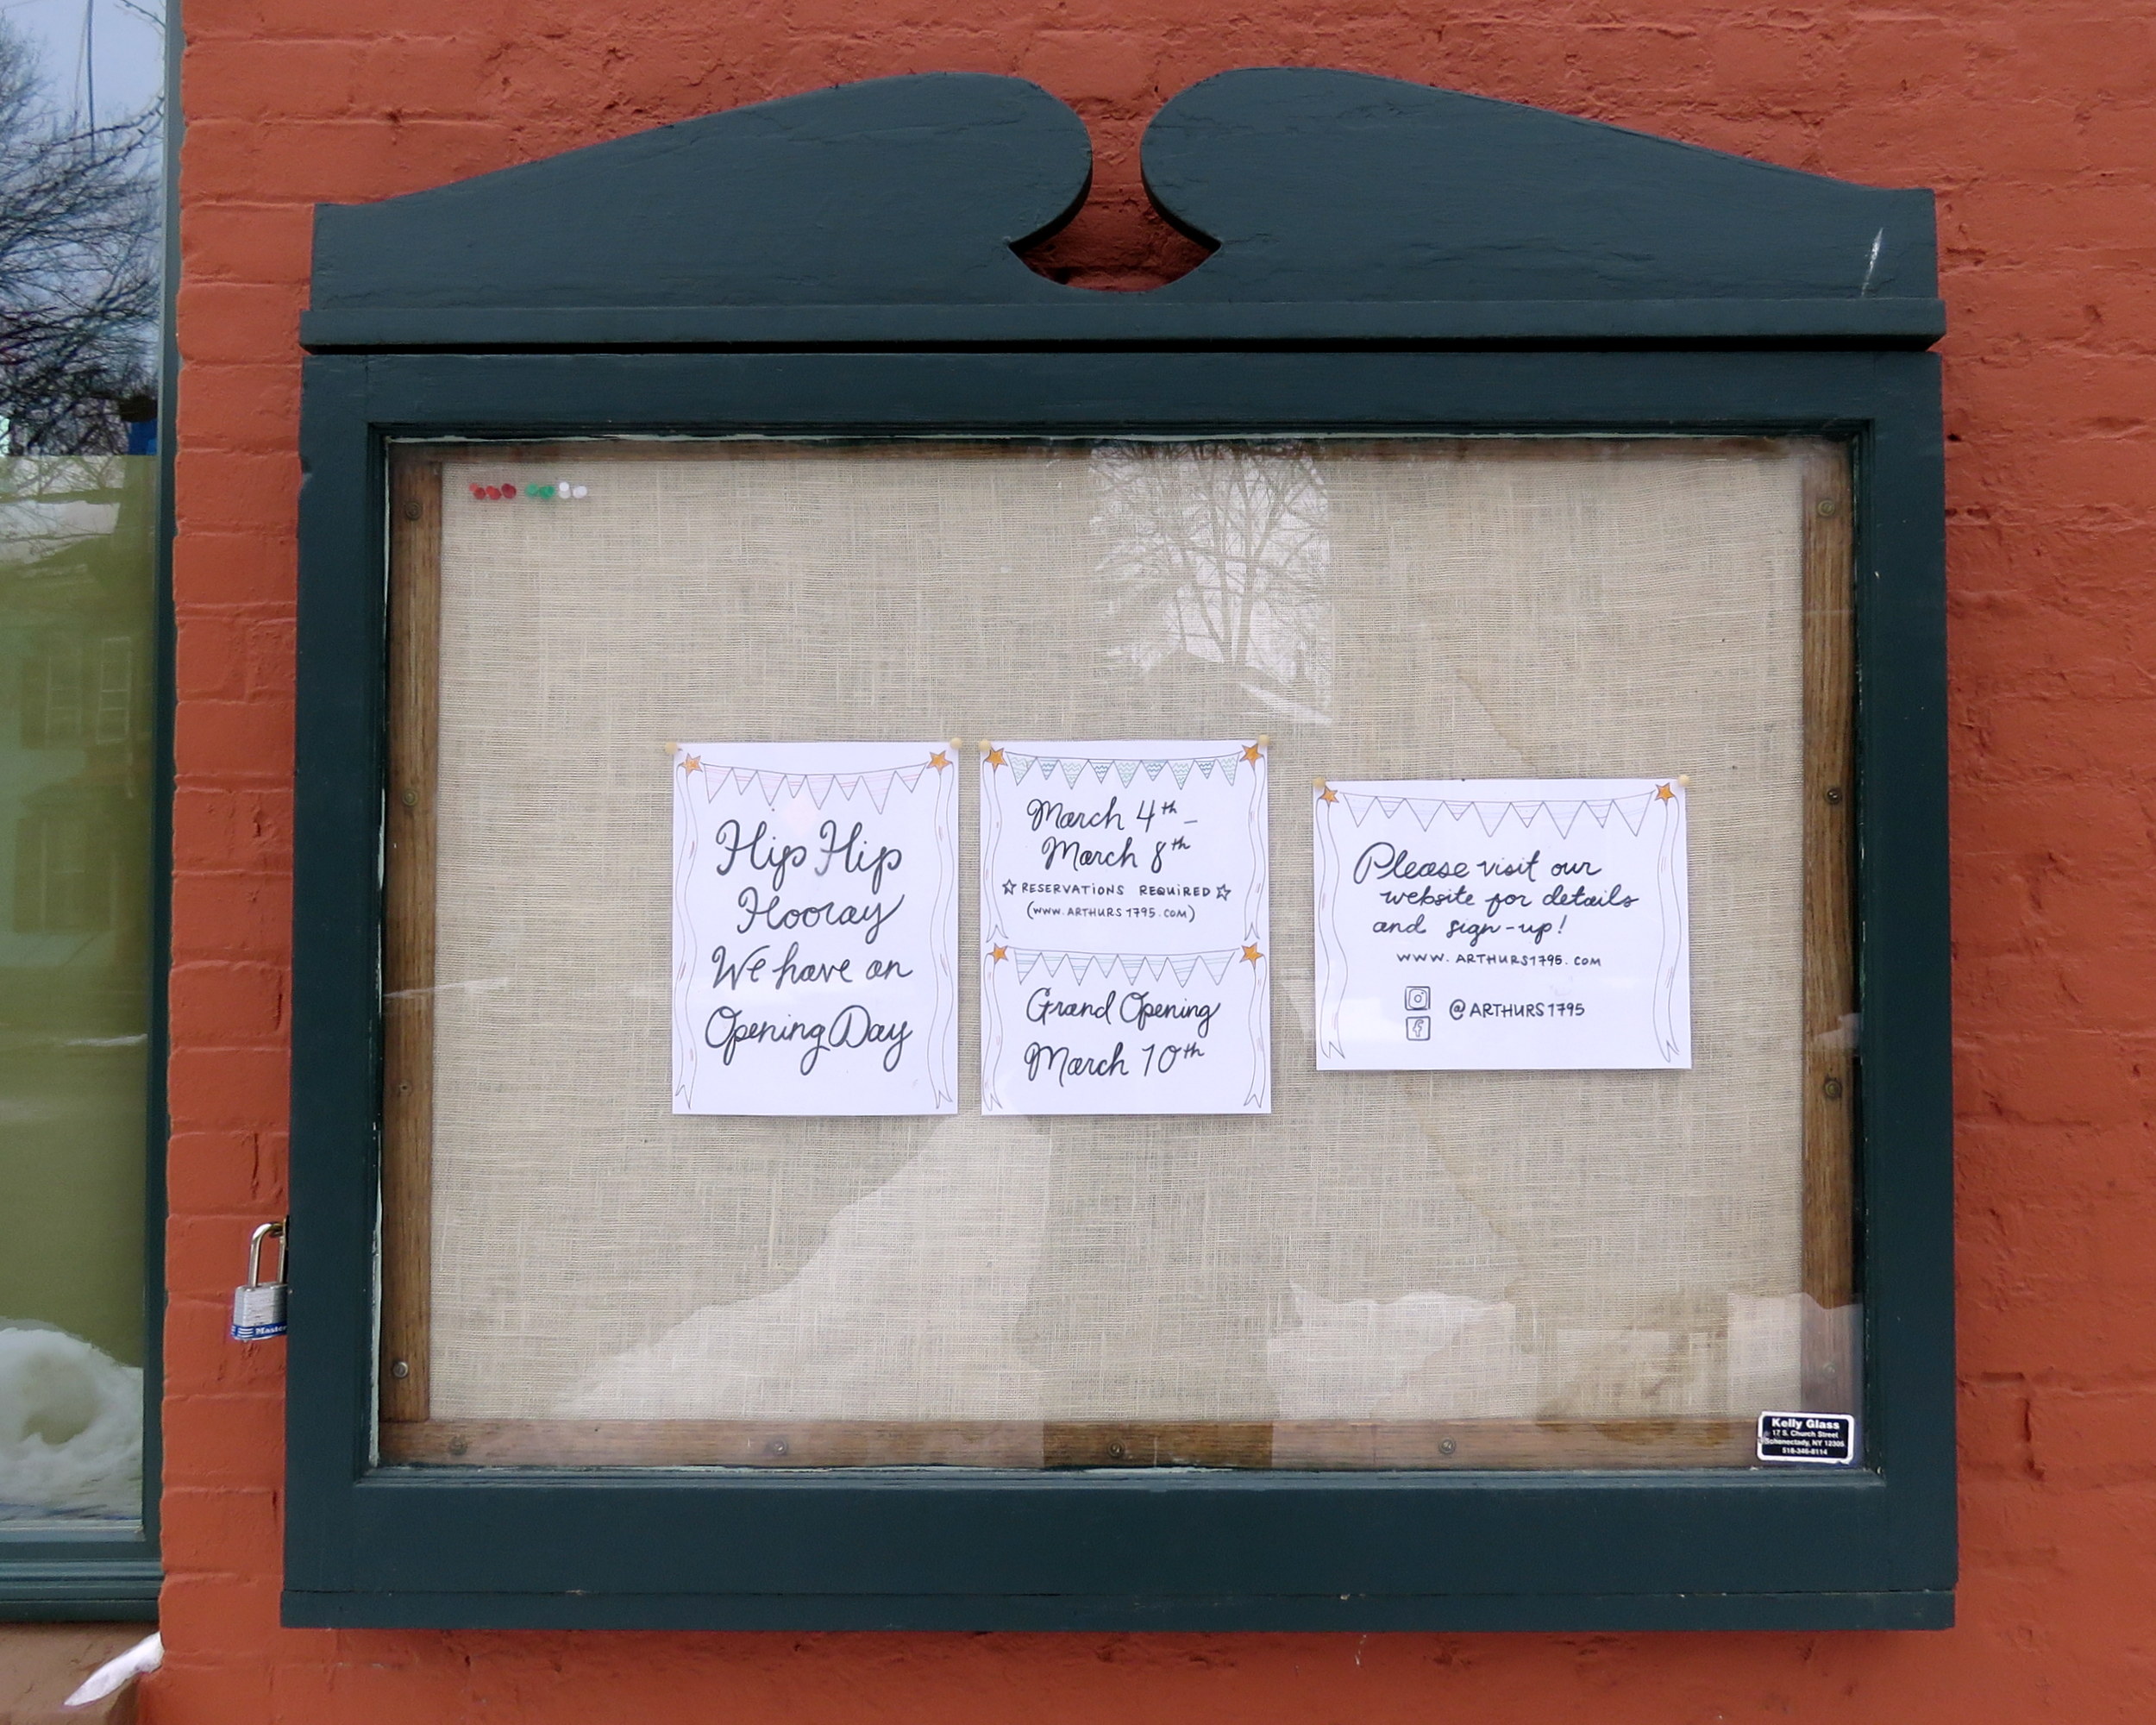 Hip Hip
Hooray
We have an
Opening Day
March 4th -
March 8th
☆ RESERVATIONS REQUIRED ☆
(WWW.ARTHURS1795.COM)
Grand Opening
March 10th
Please visit our
website for details
and sign-up!
WWW.ARTHURS1795.COM
@ARTHURS1795
Master
Kelly Glass
17 S. Church Street
Schenectady, NY 12305
518-346-6114